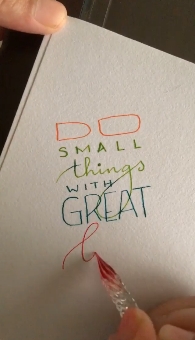 DO
SMALL
things
WITH
GREAT